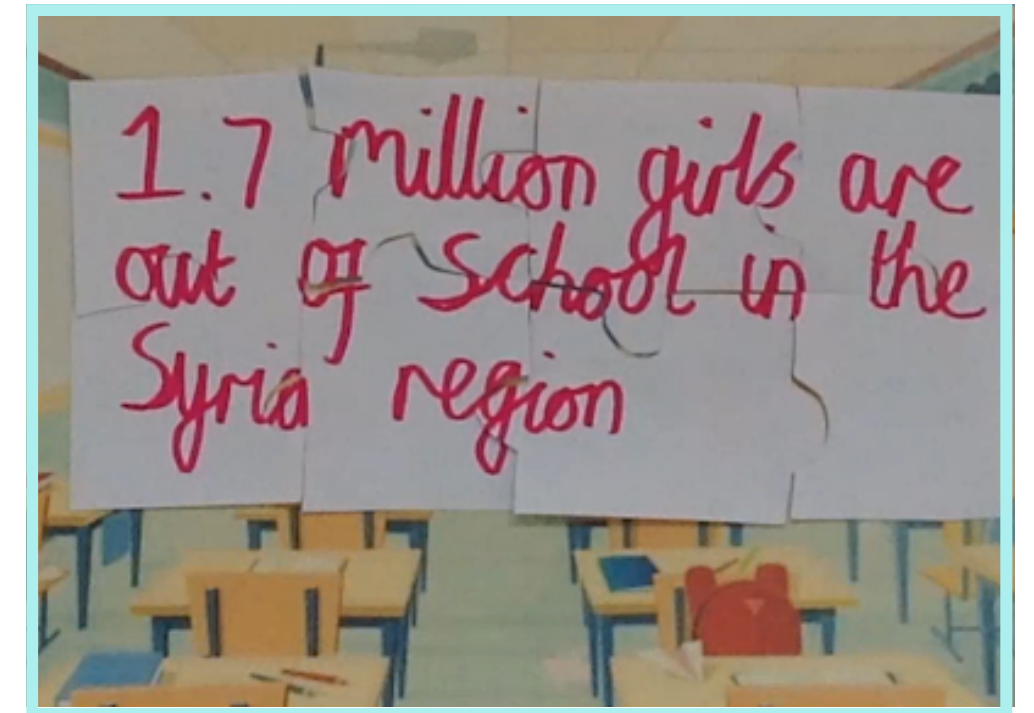 1.7 million girls are
out of School in the
Syria region